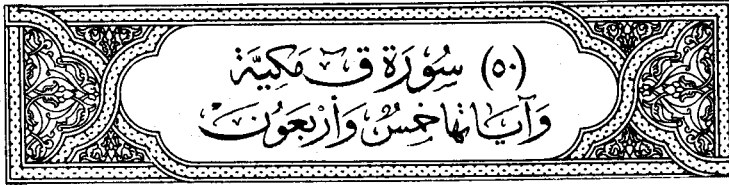 (٥٠) سُورَة قۤ مَكِيَّة
وَآيَاتهَا خمسٌ وَأرْبَعُونَ